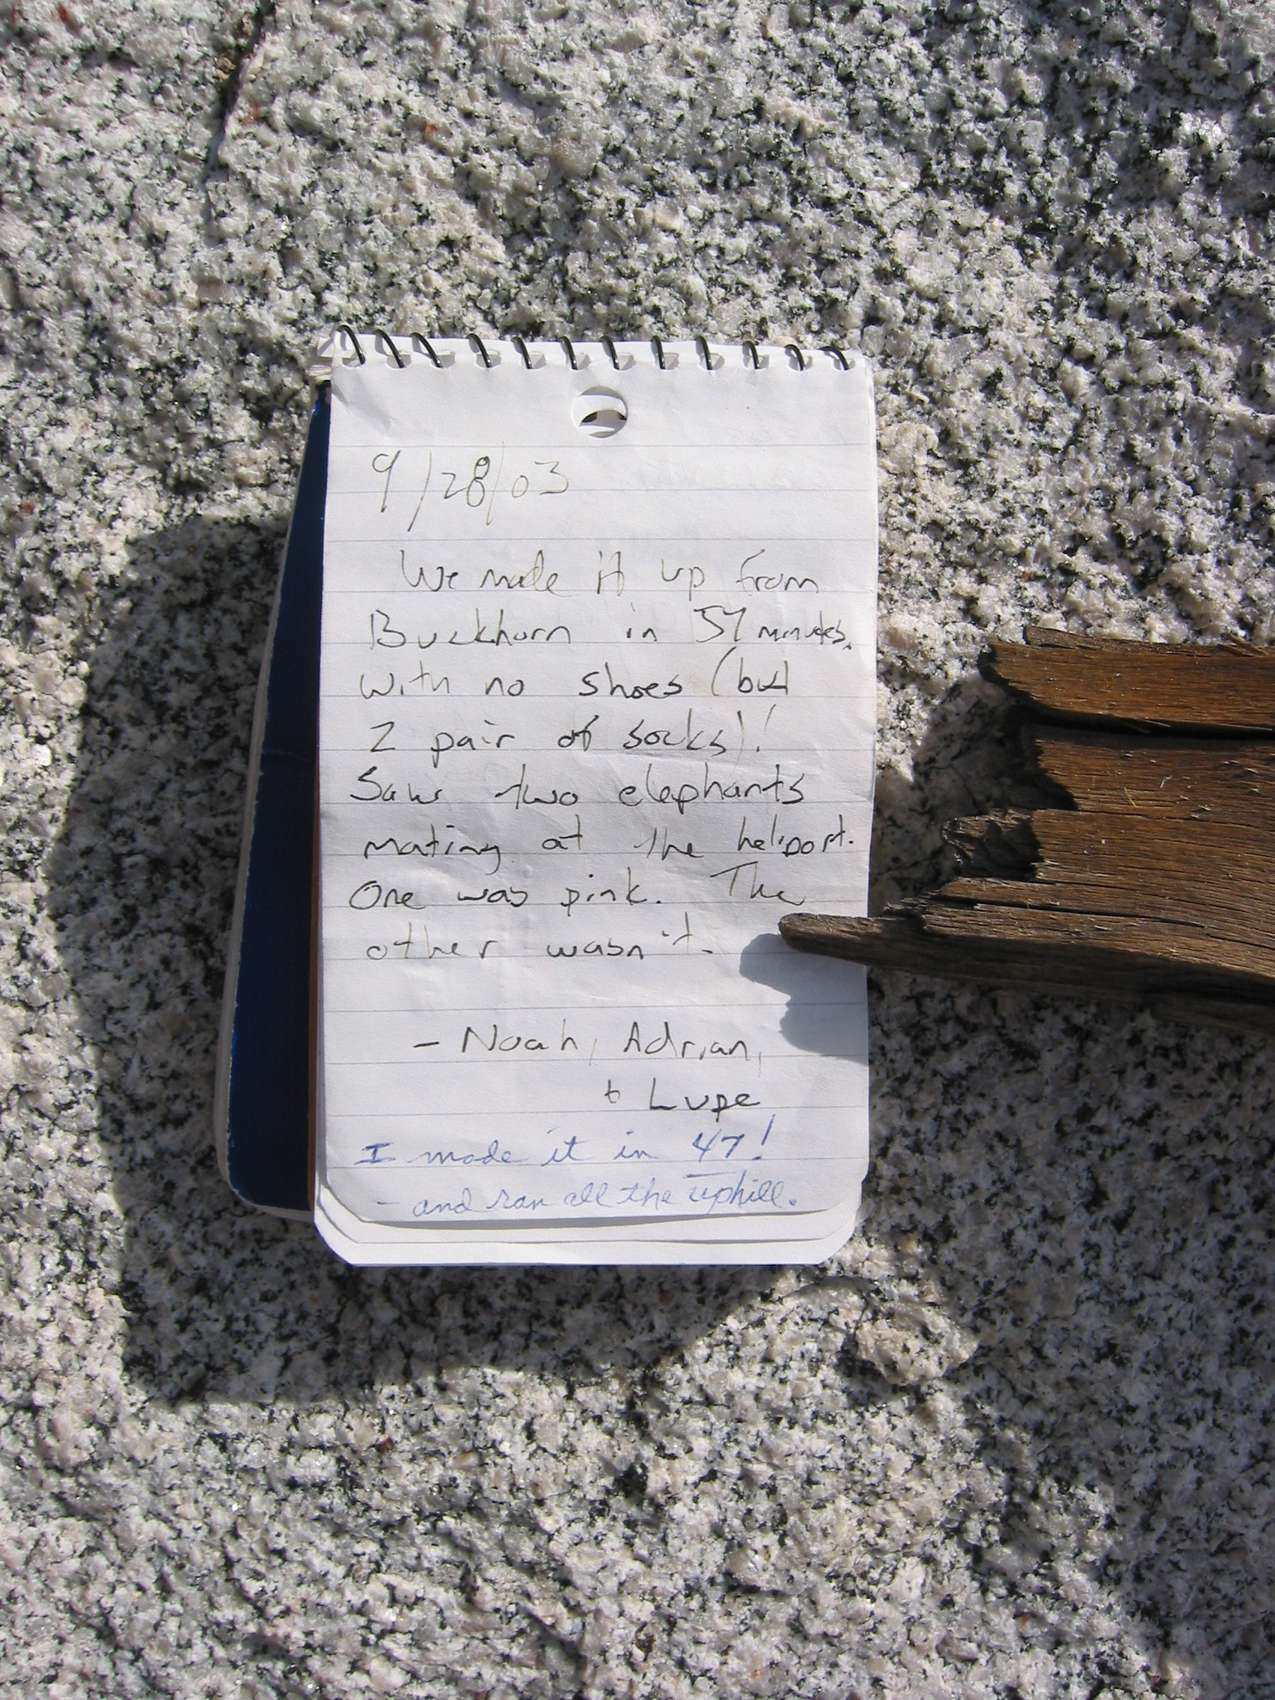 9/28/03
We made it up from
Buckhorn in 57 minutes.
with no shoes (but
2 pair of socks)!
Saw two elephants
mating at the heliport.
One was pink. The
other wasn't.
- Noah, Adrian,
+ Lupe
I made it in 47!
- and ran all the uphill.